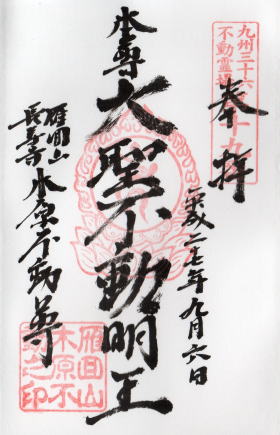 九州三十六
不動霊場
奉拝
平成二七年九月六日
本尊
大聖不動明王
雁回山
長寿寺
木原不動尊
雁回山
木原不
動之印